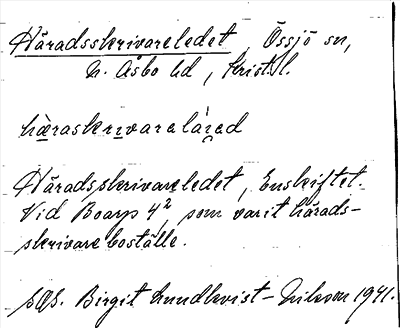 Häradsskrivareledet, Össjö sn,
N. Åsbo hd, Krist. l.
häraskrivareläred
Häradsskrivareledet, Enskiftet.
Vid Boarp 4², som varit härads-
skrivareboställe.
Birgit Lundkvist-Nilsson 1941.